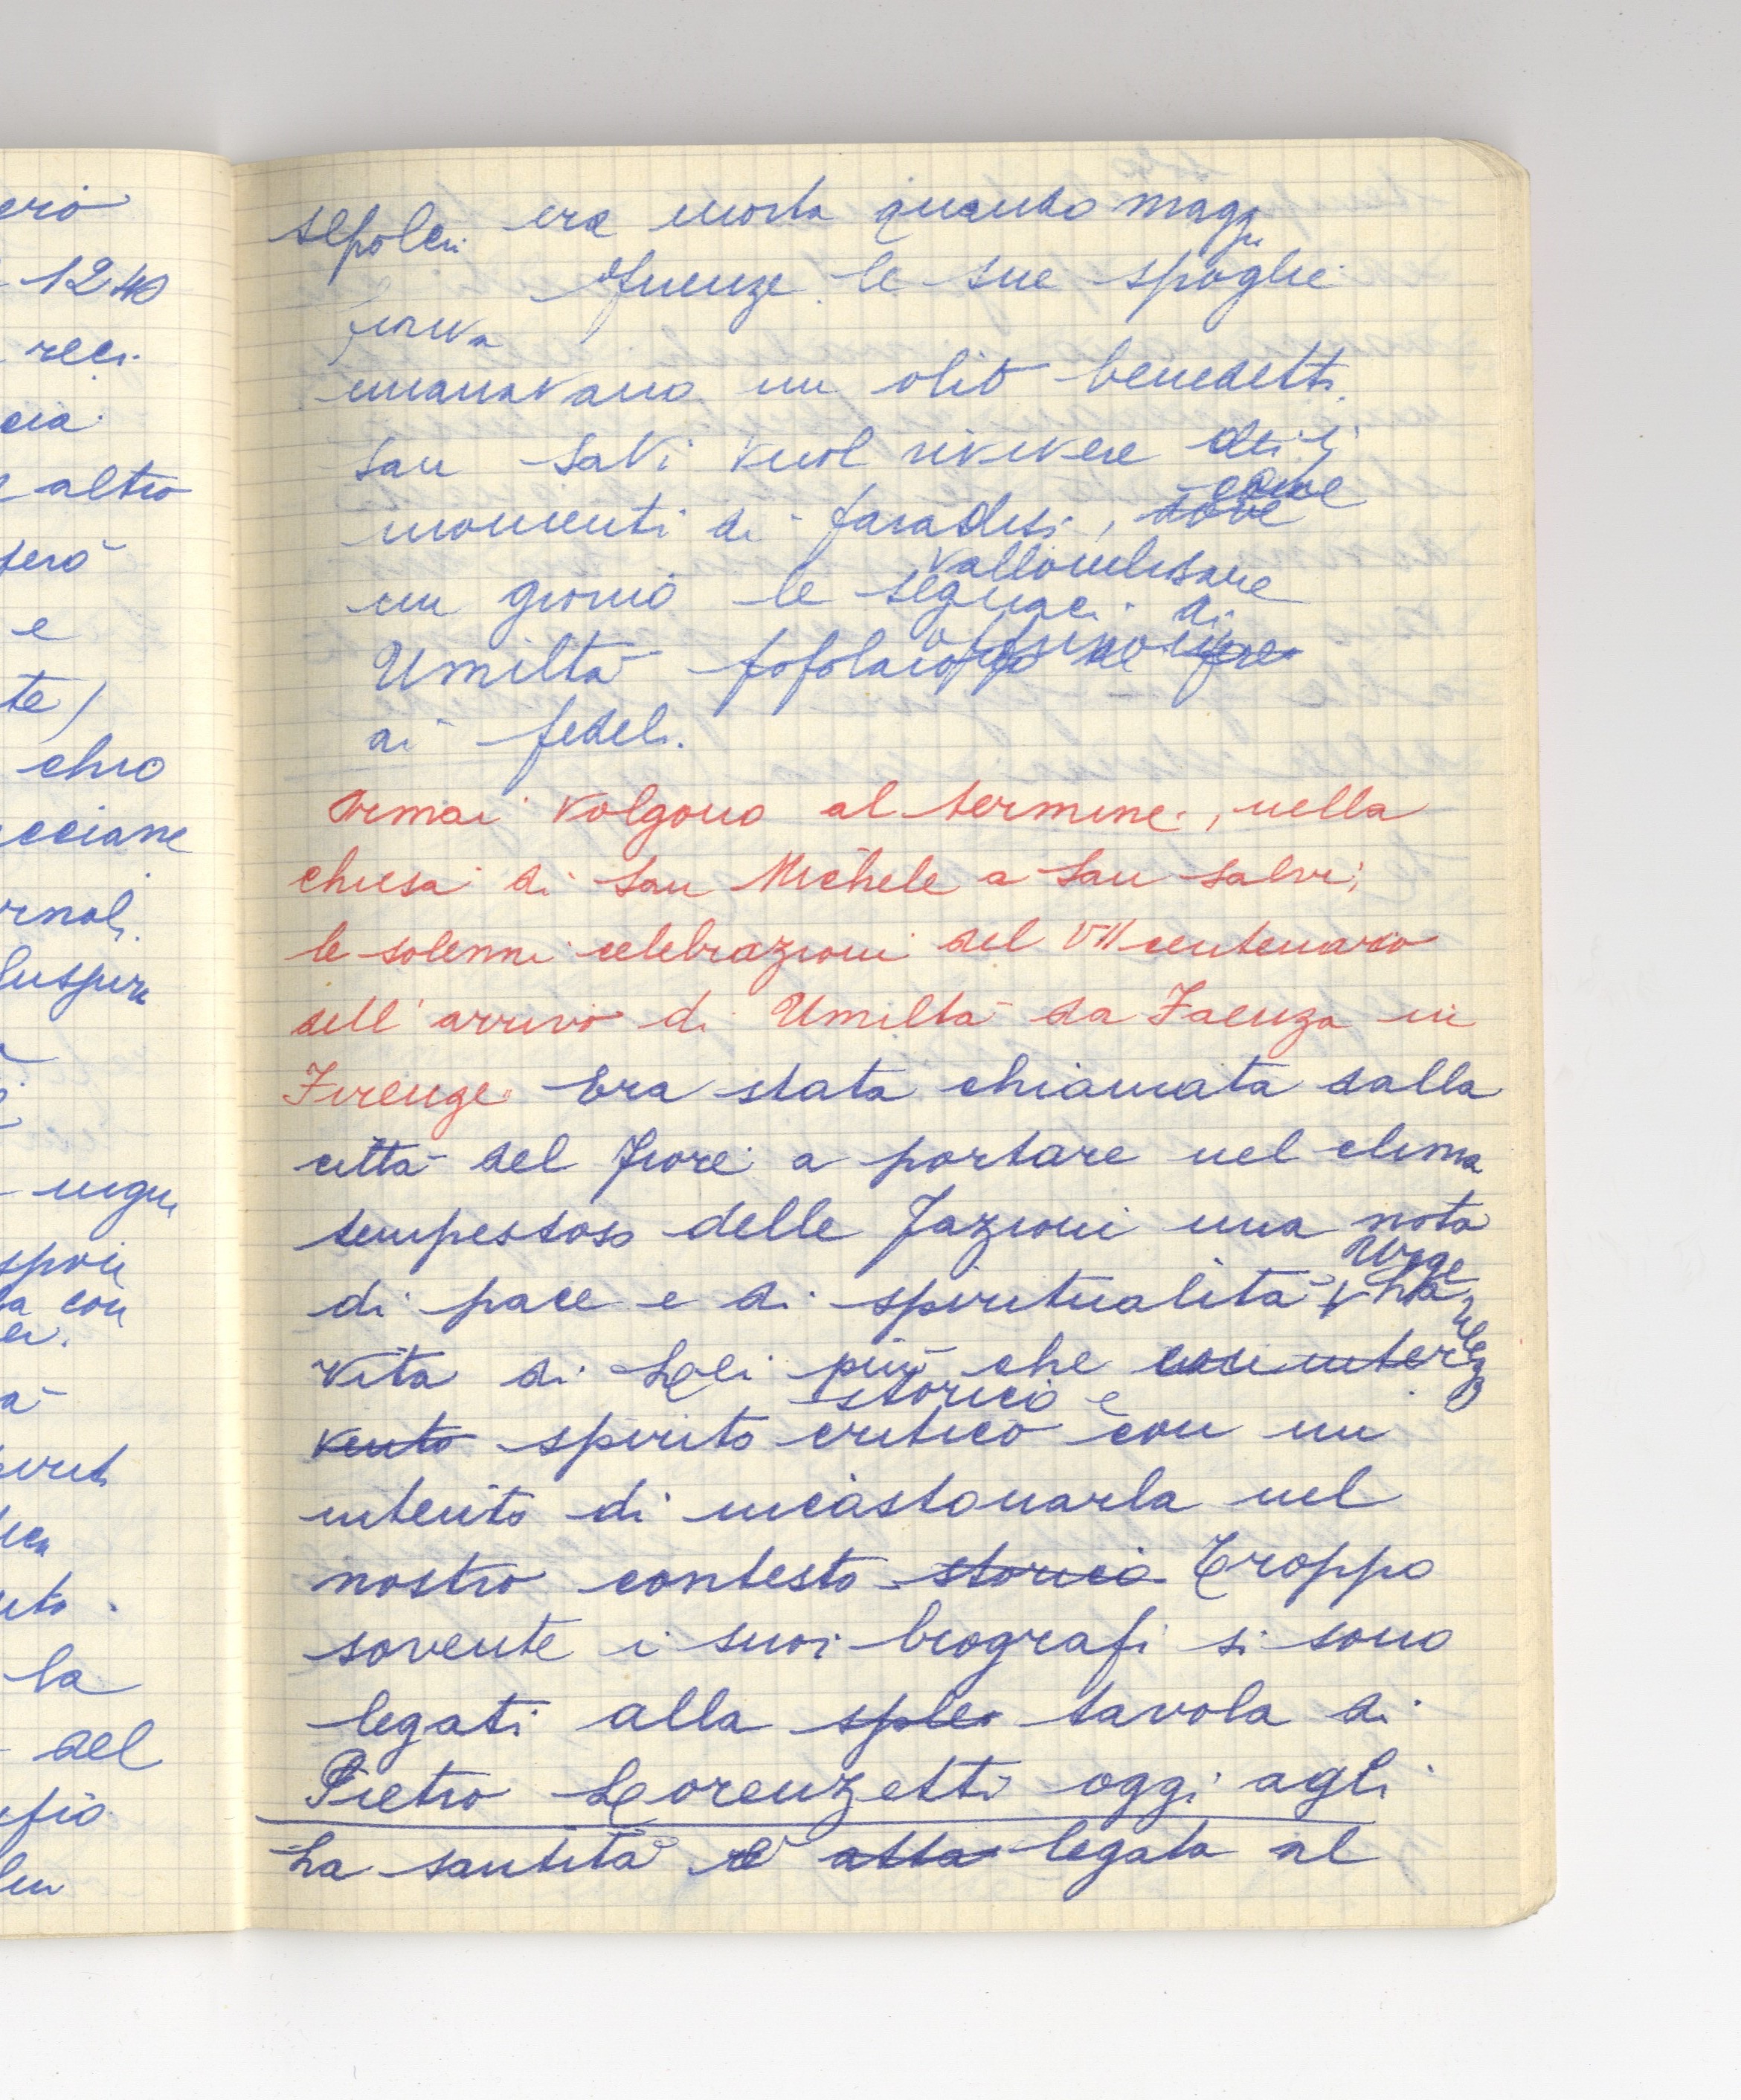 ero
1240
reci
cia
altro
però
e
te)
chio
ucciane
rnal.
ingu
spon
la con
la
del
sepolcr. era morta quando magg
le sue spoglie
emanavano un olio benedett.
San Salvi vuol rivivere dei
momenti di paradis., dove come
vallombrosane
un giorno le seguaci di
Umiltà
ai fedeli.
Ormai volgono al termine, nella
chiesa di San Michele a San Salvi,
le solenni celebrazioni del VII centenario
dell'arrivo di Umiltà da Faenza in
Firenze. Era stata chiamata dalla
città del fiore a portare nel clima
tempestoso delle fazioni una nota
di pace e di spiritualità Urge la
vita di Lei più che con inter
storico e
vento spirito critico con un
intento di incastonarla nel
nostro contesto storico Troppo
sovente i suoi biografi si sono
legati alla tavola di
Pietro Lorenzetti oggi agli
La santità è atta legata al